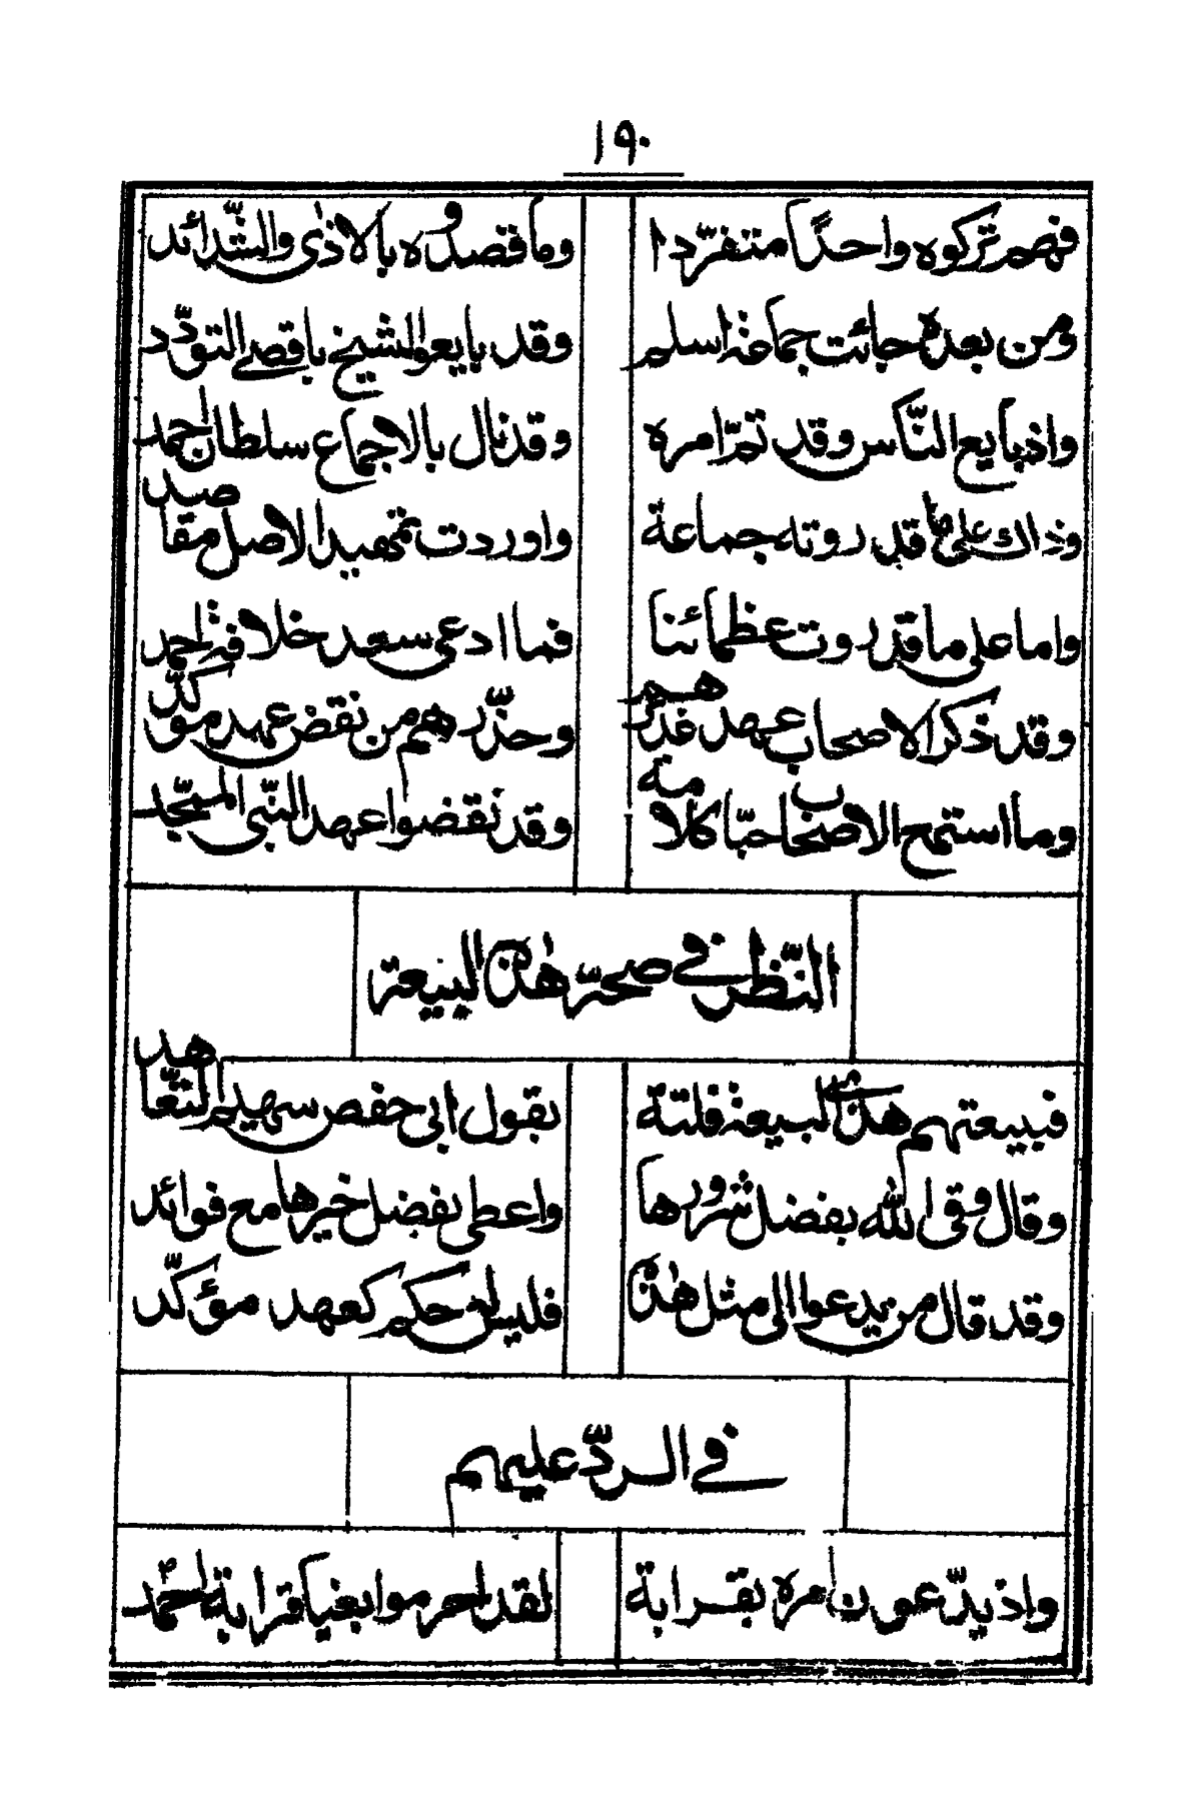 ١٩٠
فهم تركوه واحدًا متفرّدا وما قصدوه بالاذى والشّدائد
ومن بعده جائت جماعة اسلم وقد بايعوا الشيخ باقصى التودّد
واذ بايع النّاس وقد تمّ امره وقد نال بالاجماع سلطان احمد
وذاك على ما قد روته جماعة واوردت تمهيد الاصل مقاصد
واما على ما قد روت عظمائنا فما ادعى سعد خلافة احمد
وقد ذكر الاصحاب عهد غديرهم وحذّرهم من نقض عهد موكّد
وما استمع الاصحاب حبّا كلامه وقد نقضوا عهد النّبى الممجّد
النّظر في صحّة هذه البيعة
فبيعتهم هذى لبيعة فلتة بقول ابى حفص سهيم التّعاهد
وقال وقى الله بفضل شرورها واعطى بفضل خيرها مع فوائد
وقد قال من يدعوا الى مثل هذه فليس له حكم كعهد مؤكّد
في الردّ عليهم
واذ يدّعون امره بقرابة لقد احرموا بغيا قرابة احمد